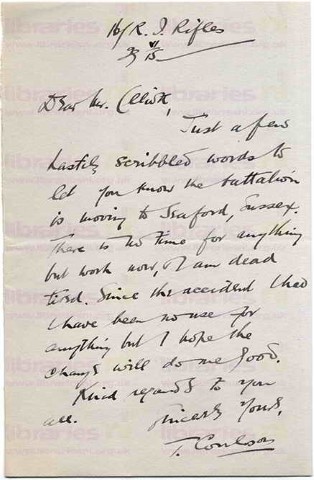 16/R. I. Rifles
Dear Mr. Elliott,
Just a few
hastily scribbled words to
let you know the battalion
is moving to Seaford, Sussex.
There is no time for anything
but work now, & I am dead
tired. Since this accident I had
I have been no use for
anything but I hope the
change will do me good.
Kind regards to you
all.
Sincerely yours,
T. Coulson
libraries